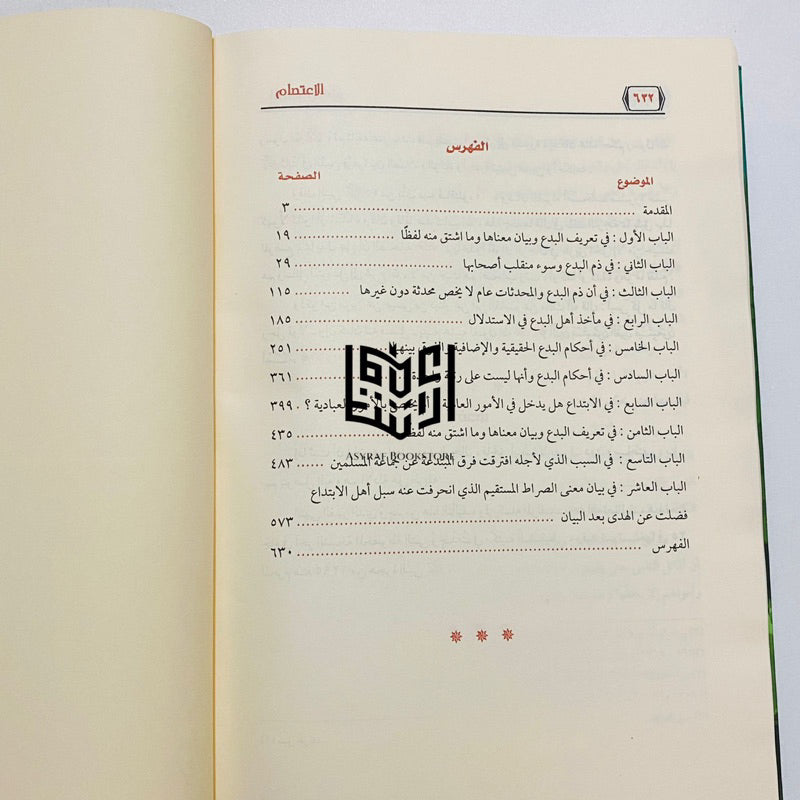 ٦٣٢ الاعتصام
الفهرس
الموضوع الصفحة
المقدمة ........ ٣
الباب الأول : في تعريف البدع وبيان معناها وما اشتق منه لفظًا ........ ١٩
الباب الثاني : في ذم البدع وسوء منقلب أصحابها ........ ٢٩
الباب الثالث : في أن ذم البدع والمحدثات عام لا يخص محدثة دون غيرها ........ ١١٥
الباب الرابع : في مأخذ أهل البدع في الاستدلال ........ ١٨٥
الباب الخامس : في أحكام البدع الحقيقية والإضافية والفرق بينهما ........ ٢٥١
الباب السادس : في أحكام البدع وأنها ليست على ........ ٣٦١
الباب السابع : في الابتداع هل يدخل في الأمور يختص بالأمور العبادية ؟ . ٣٩٩
الباب الثامن : في تعريف البدع وبيان معناها وما اشتق منه لفظًا ........ ٤٣٥
الباب التاسع : في السبب الذي لأجله افترقت فرق المبتدعة عن جماعة المسلمين ...... ٤٨٣
الباب العاشر : في بيان معنى الصراط المستقيم الذي انحرفت عنه سبل أهل الابتداع
فضلت عن الهدى بعد البيان ........ ٥٧٣
الفهرس ........ ٦٣٠
ASYRAF BOOKSTORE